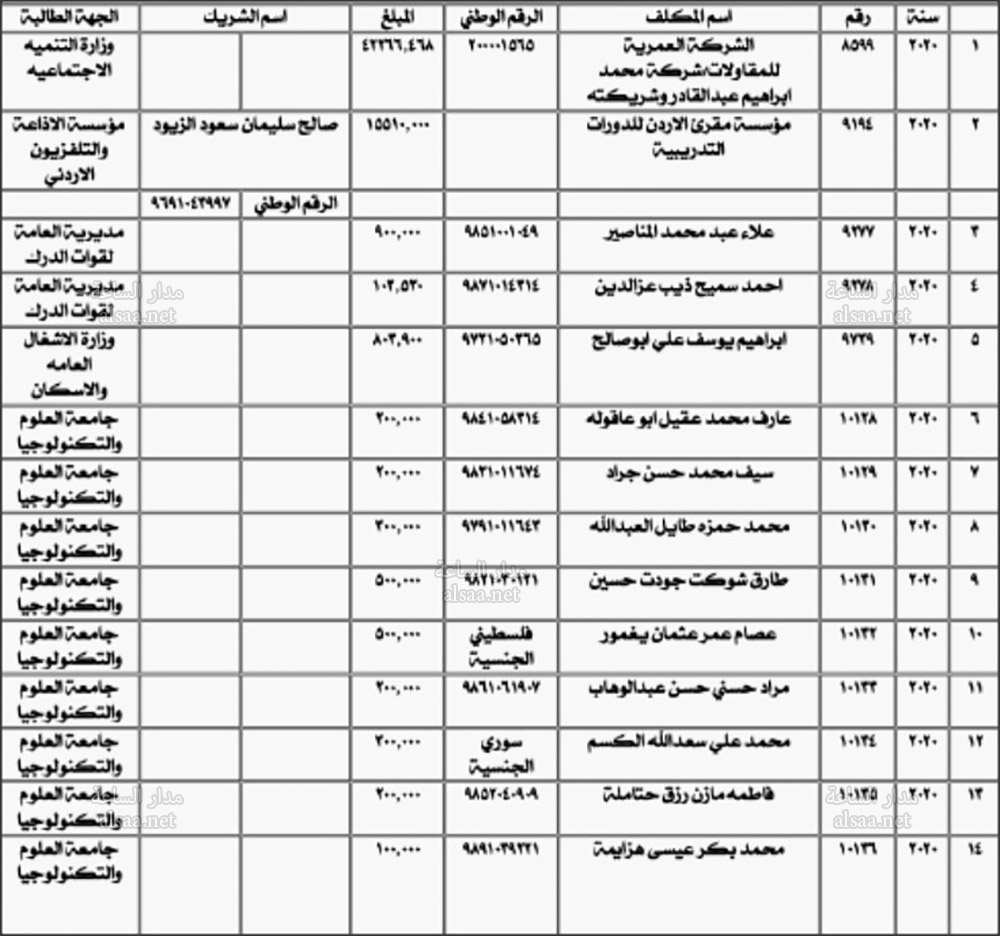 سنة رقم اسم المكلف الرقم الوطني المبلغ اسم الشريك الجهة الطالبة
١ ٢٠٢٠ ٨٥٩٩ الشركة العمرية ٢٠٠٠٠١٥٦٥ ٤٢٢٦٦,٤٦٨ وزارة التنميه
للمقاولات/شركة محمد الاجتماعيه
ابراهيم عبدالقادر وشريكته
٢ ٢٠٢٠ ٩١٩٤ مؤسسة مقرئ الاردن للدورات ١٥٥١٠,٠٠٠ صالح سليمان سعود الزيود مؤسسة الاذاعة
التدريبية والتلفزيون
الاردني
الرقم الوطني ٩٦٩١٠٤٣٩٩٧
٣ ٢٠٢٠ ٩٢٧٧ علاء عبد محمد المناصير ٩٨٥١٠٠١٠٤٩ ٩٠٠,٠٠٠ مديرية العامة
لقوات الدرك
٤ ٢٠٢٠ ٩٢٧٨ احمد سميح ذيب عزالدين ٩٨٧١٠١٤٣١٤ ١٠٣,٥٣٠ مديرية العامة
لقوات الدرك
٥ ٢٠٢٠ ٩٧٣٩ ابراهيم يوسف علي ابوصالح ٩٧٢١٠٥٠٣٦٥ ٨٠٣,٩٠٠ وزارة الاشغال
العامه
والاسكان
٦ ٢٠٢٠ ١٠١٢٨ عارف محمد عقيل ابو عاقوله ٩٨٤١٠٥٨٣١٤ ٢٠٠,٠٠٠ جامعة العلوم
والتكنولوجيا
٧ ٢٠٢٠ ١٠١٢٩ سيف محمد حسن جراد ٩٨٣١٠١١٦٧٤ ٢٠٠,٠٠٠ جامعة العلوم
والتكنولوجيا
٨ ٢٠٢٠ ١٠١٣٠ محمد حمزه طايل العبدالله ٩٧٩١٠١١٦٤٣ ٣٠٠,٠٠٠ جامعة العلوم
والتكنولوجيا
٩ ٢٠٢٠ ١٠١٣١ طارق شوكت جودت حسين ٩٨٢١٠٣٠١٢١ ٥٠٠,٠٠٠ جامعة العلوم
والتكنولوجيا
١٠ ٢٠٢٠ ١٠١٣٢ عصام عمر عثمان يغمور فلسطيني ٥٠٠,٠٠٠ جامعة العلوم
الجنسية والتكنولوجيا
١١ ٢٠٢٠ ١٠١٣٣ مراد حسني حسن عبدالوهاب ٩٨٦١٠٦١٩٠٧ ٢٠٠,٠٠٠ جامعة العلوم
والتكنولوجيا
١٢ ٢٠٢٠ ١٠١٣٤ محمد علي سعدالله الكسم سوري ٣٠٠,٠٠٠ جامعة العلوم
الجنسية والتكنولوجيا
١٣ ٢٠٢٠ ١٠١٣٥ فاطمه مازن رزق حتاملة ٩٨٥٢٠٤٠٩٠٩ ٢٠٠,٠٠٠ جامعة العلوم
والتكنولوجيا
١٤ ٢٠٢٠ ١٠١٣٦ محمد بكر عيسى هزايمة ٩٨٩١٠٣٩٢٢١ ١٠٠,٠٠٠ جامعة العلوم
والتكنولوجيا
مدار الساعة
alsaa.net
مدار الساعة
alsaa.net
مدار الساعة
alsaa.net
مدار الساعة
alsaa.net
مدار الساعة
alsaa.net